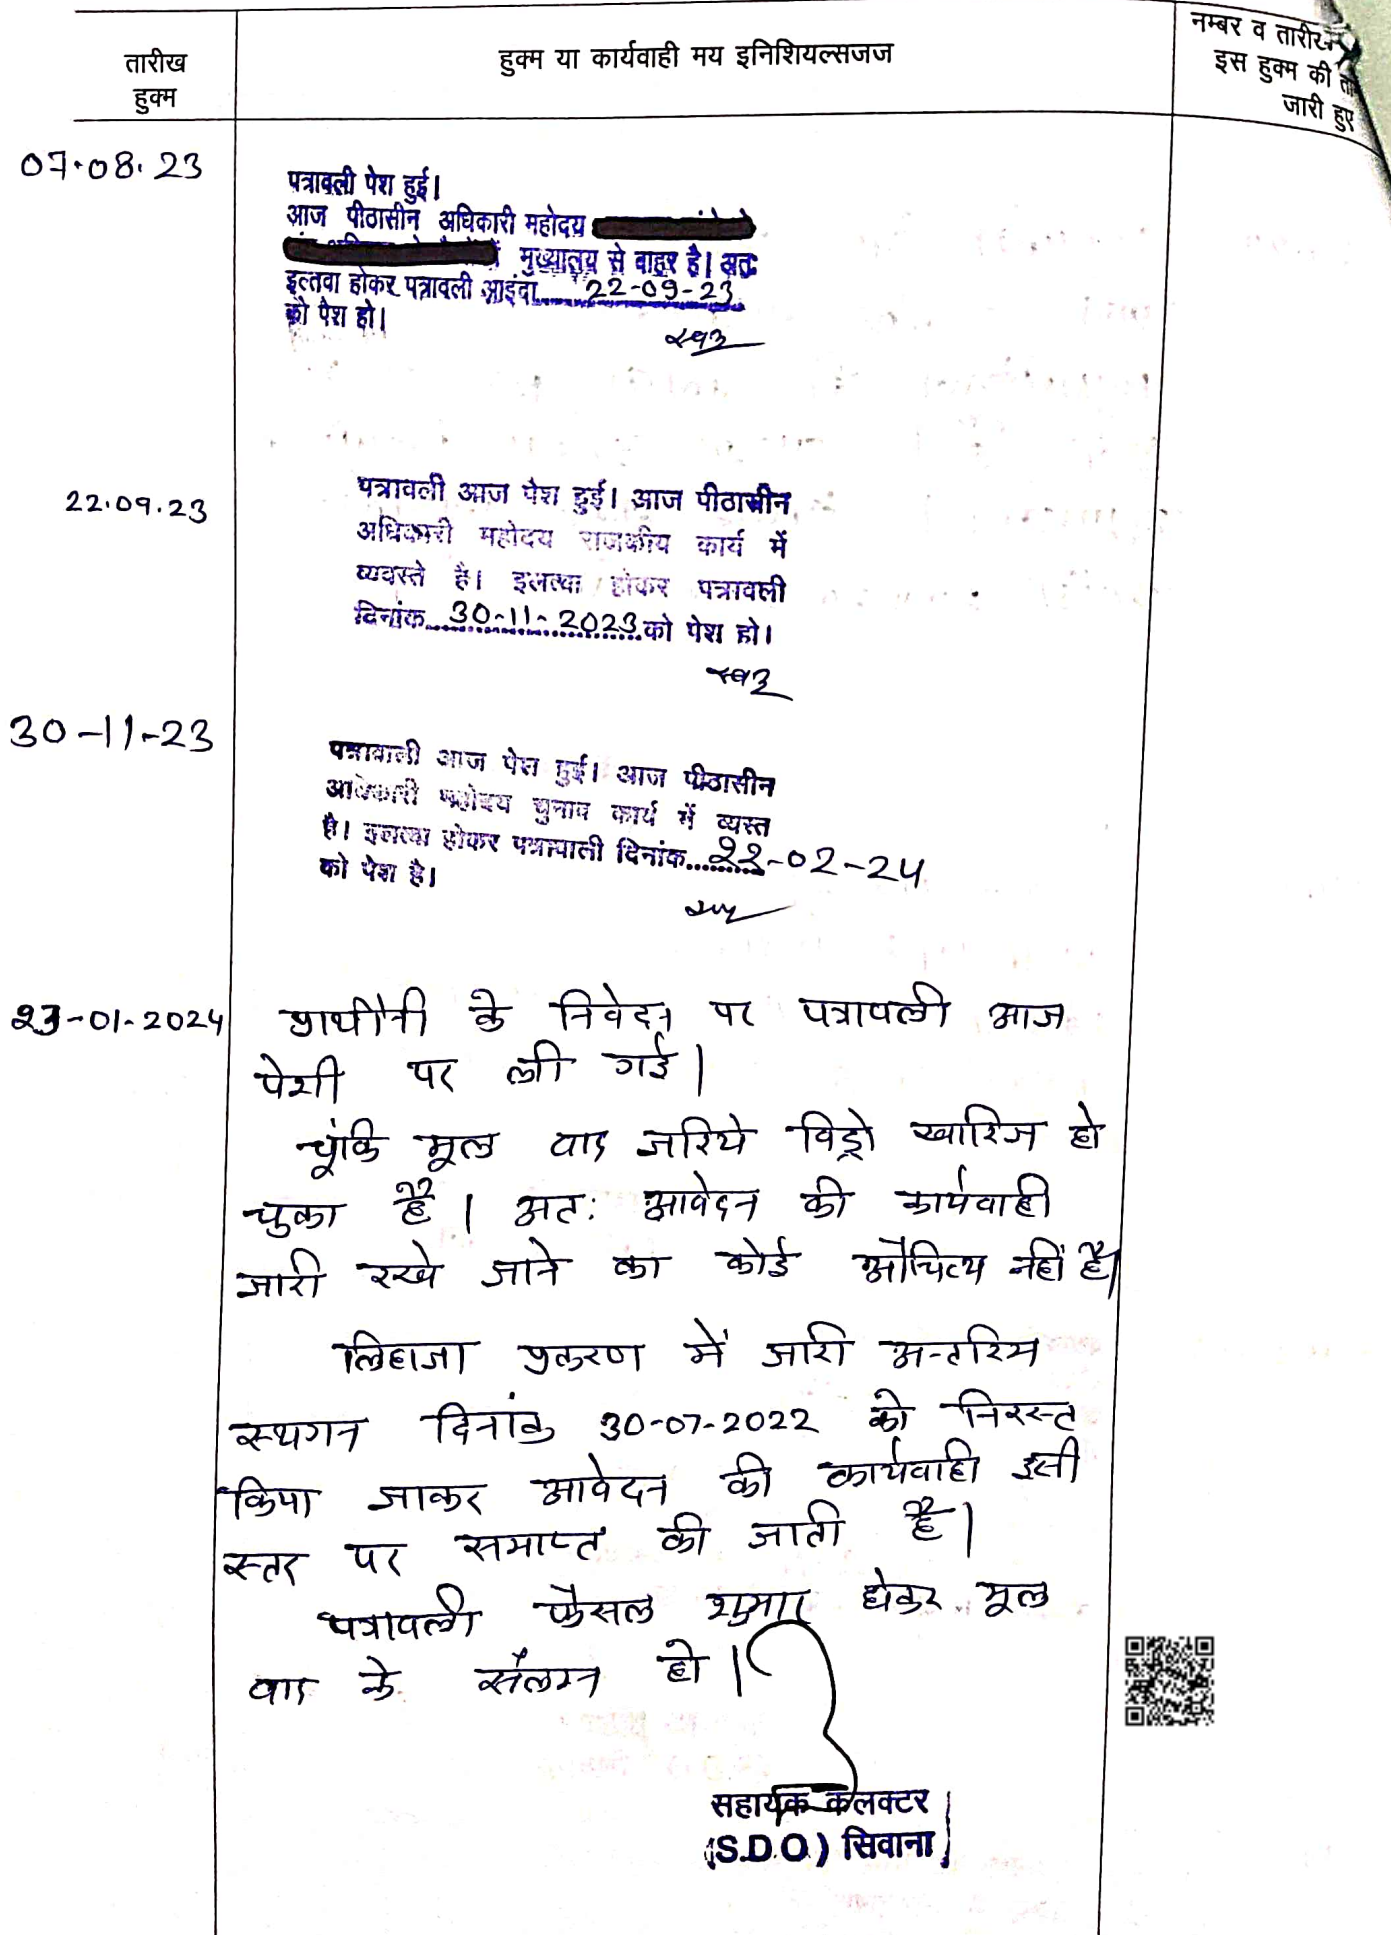 तारीख
हुक्म
हुक्म या कार्यवाही मय इनिशियल्सजज
नम्बर व तारीख
इस हुक्म की
जारी हुए
07.08.23
पत्रावली पेश हुई।
आज पीठासीन अधिकारी महोदय
मुख्यालय से बाहर है। अतः
इल्तवा होकर पत्रावली आइंदा 22-09-23
को पेश हो।
22.09.23
पत्रावली आज पेश हुई। आज पीठासीन
अधिकारी महोदय राजकीय कार्य में
व्यवस्ते है। इलत्वा होकर पत्रावली
दिनांक 30-11-2023 को पेश हो।
30-11-23
पत्रावाली आज पेश हुई। आज पीठासीन
अधिकारी महोदय चुनाव कार्य में व्यस्त
है। इलत्वा होकर पत्रावाली दिनांक 22-02-24
को पेश है।
23-01-2024
प्रार्थीनी के निवेदन पर पत्रावली आज
पेशी पर ली गई।
चूंकि मूल वाद जरिये विड्रो खारिज हो
चुका है। अतः आवेदन की कार्यवाही
जारी रखे जाने का कोई औचित्य नहीं है।
लिहाजा प्रकरण में जारी अन्तरिम
स्थगन दिनांक 30-07-2022 को निरस्त
किया जाकर आवेदन की कार्यवाही इसी
स्तर पर समाप्त की जाती है।
पत्रावली फैसल शुमार होकर मूल
वाद के संलग्न हो।
सहायक कलक्टर
(S.D.O.) सिवाना